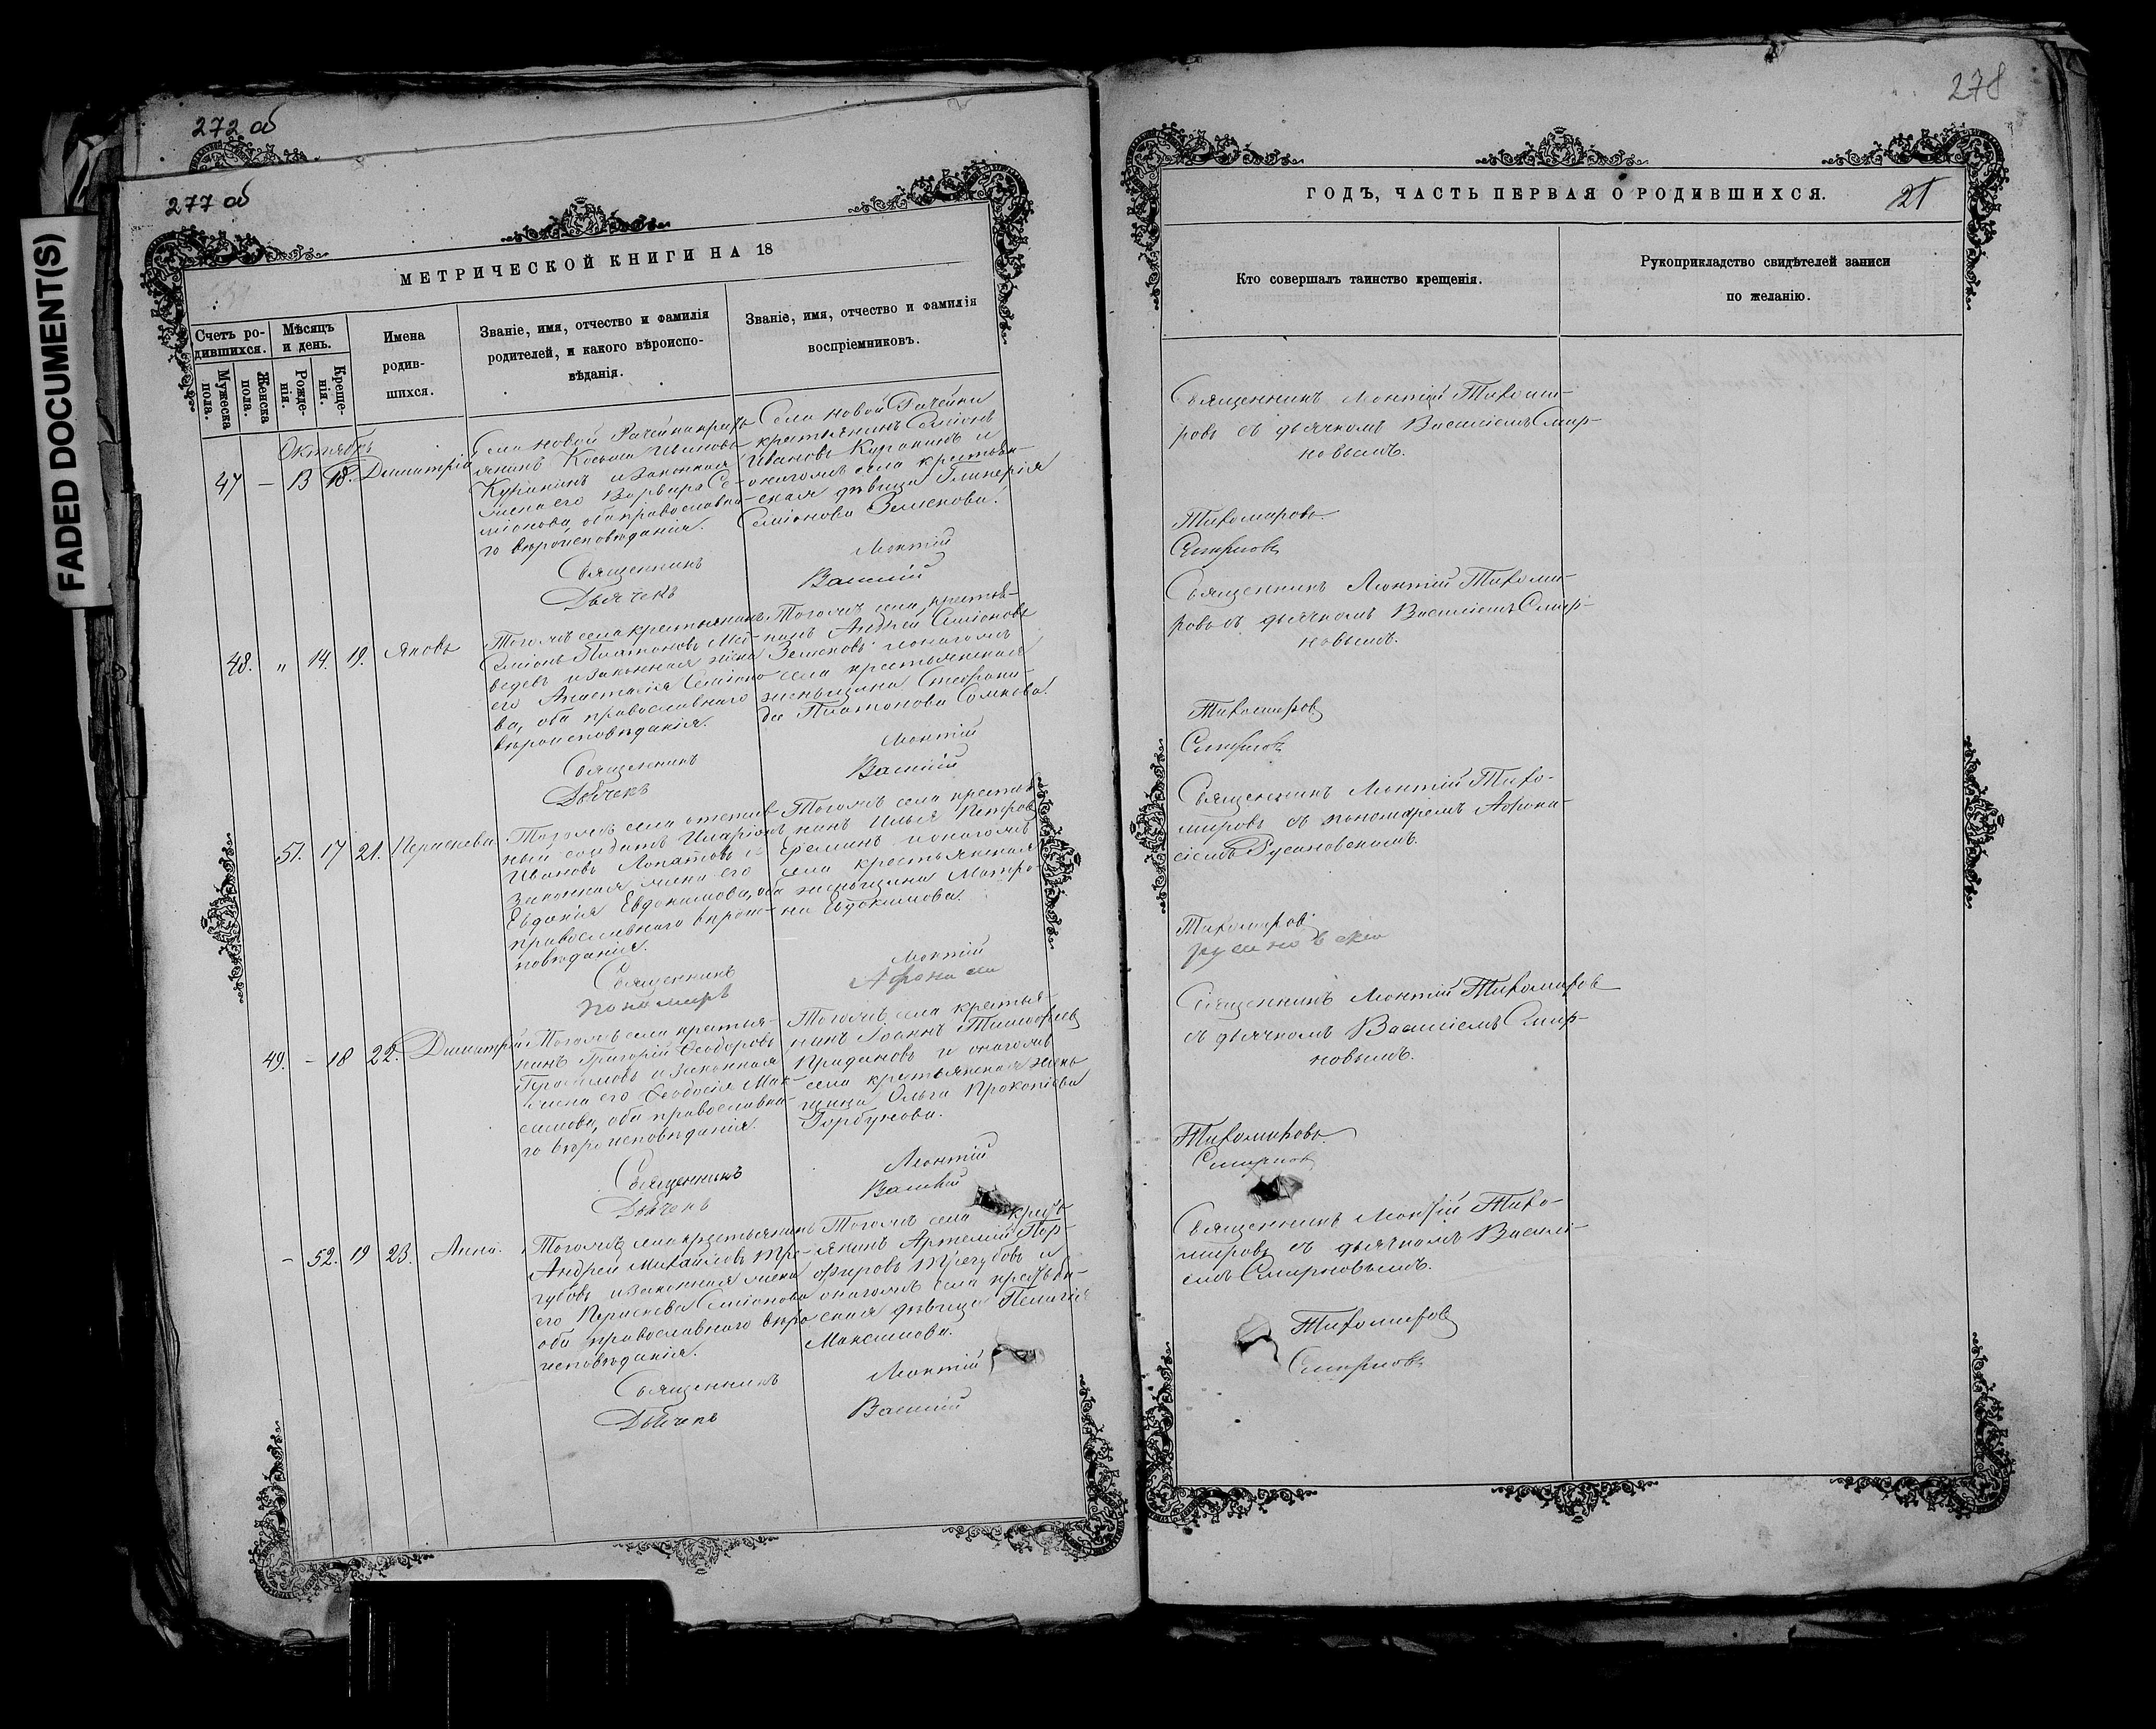 272 об
277 об
FADED DOCUMENT(S)
МЕТРИЧЕСКОЙ КНИГИ НА 18
Счетъ ро-
дившихся.
Мѣсяцъ
и день.
Мужеска
пола.
Женска
пола.
Рожде-
нія.
Креще-
нія.
Имена
родив-
шихся.
Званіе, имя, отчество и фамилія
родителей, и какого вѣроиспо-
вѣданія.
Званіе, имя, отчество и фамилія
воспріемниковъ.
Октябрь
47 — 13 18. Димитрій
Села новой Рачейки кресть-
янинъ Косьма Ивановъ
Куракинъ и законная
жена его Варвара Се-
міонова, оба православна-
го вѣроисповѣданія.
Села новой Рачейки
крестьянинъ Семіонъ
Ивановъ Куракинъ и
онагожъ села крестьян-
ская дѣвица Гликерія
Семіонова Земскова.
Священникъ Леонтій
Дьячекъ Василій
48. „ 14. 19. Яковъ
Тогожъ села крестьянинъ
Семіонъ Платоновъ Мед-
ведевъ и законная жена
его Анастасія Семіоно-
ва, оба православнаго
вѣроисповѣданія.
Тогожъ села крестья-
нинъ Андрей Семіоновъ
Земсковъ и онагожъ
села крестьянская
женьщина Стефани-
да Платонова Сомкова.
Священникъ Леонтій
Дьячекъ Василій
51. 17 21. Параскева
Тогожъ села отстав-
ный солдатъ Иларіонъ
Ивановъ Лопатовъ и
законная жена его
Евдокія Евдокимова, оба
православнаго вѣроис-
повѣданія.
Тогожъ села крестья-
нинъ Илья Петровъ
Ереминъ и онагожъ
села крестьянская
женьщина Матро-
на Евдокимова.
Священникъ Леонтій
пономарь Афонаси
49. – 18 22. Димитрій
Тогожъ села крестья-
нинъ Григорій Ѳеодоровъ
Герасимовъ и законная
жена его Ѳеодосія Мак-
симова, оба православна-
го вѣроисповѣданія.
Тогожъ села крестья-
нинъ Іоаннъ Тимофеевъ
Придановъ и онагожъ
села крестьянская жень-
щина Ольга Прокопіева
Горбунова.
Священникъ Леонтій
Дьячекъ Василій
– 52. 19 23. Анна.
Тогожъ села крестьянинъ
Андрей Михайловъ Тре-
губовъ и законная жена
его Параскева Семіонова
оба православнаго вѣро
исповѣданія.
Тогожъ села кресть-
янинъ Артемій Пор-
фировъ Трегубовъ и
онагожъ села крестьян-
ская дѣвица Пелагія
Максимова.
Священникъ Леонтій
Дьячекъ Василій
278
ГОДЪ, ЧАСТЬ ПЕРВАЯ О РОДИВШИХСЯ.
21
Кто совершалъ таинство крещенія.
Рукоприкладство свидѣтелей записи
по желанію.
Священникъ Леонтій Тихоми-
ровъ съ дьячкомъ Василіемъ Смир-
новымъ.
Тихомировъ.
Смирновъ
Священникъ Леонтій Тихоми-
ровъ съ дьячкомъ Василіемъ Смир-
новымъ.
Тихомировъ
Смирновъ
Священникъ Леонтій Тихо-
мировъ съ пономаремъ Афона-
сіемъ Русановскимъ.
Тихомировъ
Священникъ Леонтій Тихомировъ
съ дьячкомъ Василіемъ Смир-
новымъ.
Тихомировъ.
Смирновъ
Священникъ Леонтій Тихо-
мировъ съ дьячкомъ Василі-
емъ Смирновымъ.
Тихомировъ
Смирновъ